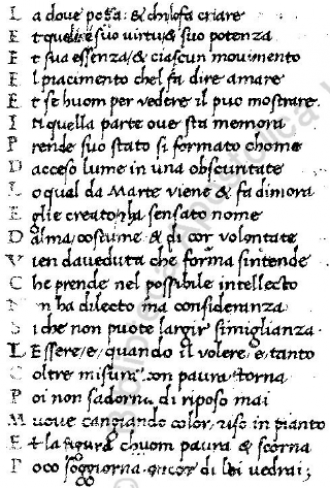 L a dove posa: & chi lo fa criare
E t quel e suo virtu & suo potenza
E t sua essenza / & ciascun movimento
E l piacimento chel fa dire amare
E t se huom per vedere il puo mostrare.
I n quella parte ove sta memora
P rende suo stato si formato chome
D acceso lume in una obscuritate
L oqual da Marte viene & fa dimora
E glie creato / ha sensato nome
D alma / costume & di cor volontate
V ien da veduta che forma sintende
C he prende nel possibile intellecto
in ha dilecto ma consideranza
S i che non puote largir simiglianza.
L Essere / e / quando il volere / e tanto
C oltre misura con paura torna
P oi non sadorna di riposo mai
M uove cangiando color, riso in pianto
E t la figura chuom paura & scorna
P oco soggiorna ancor di lui vedrai;